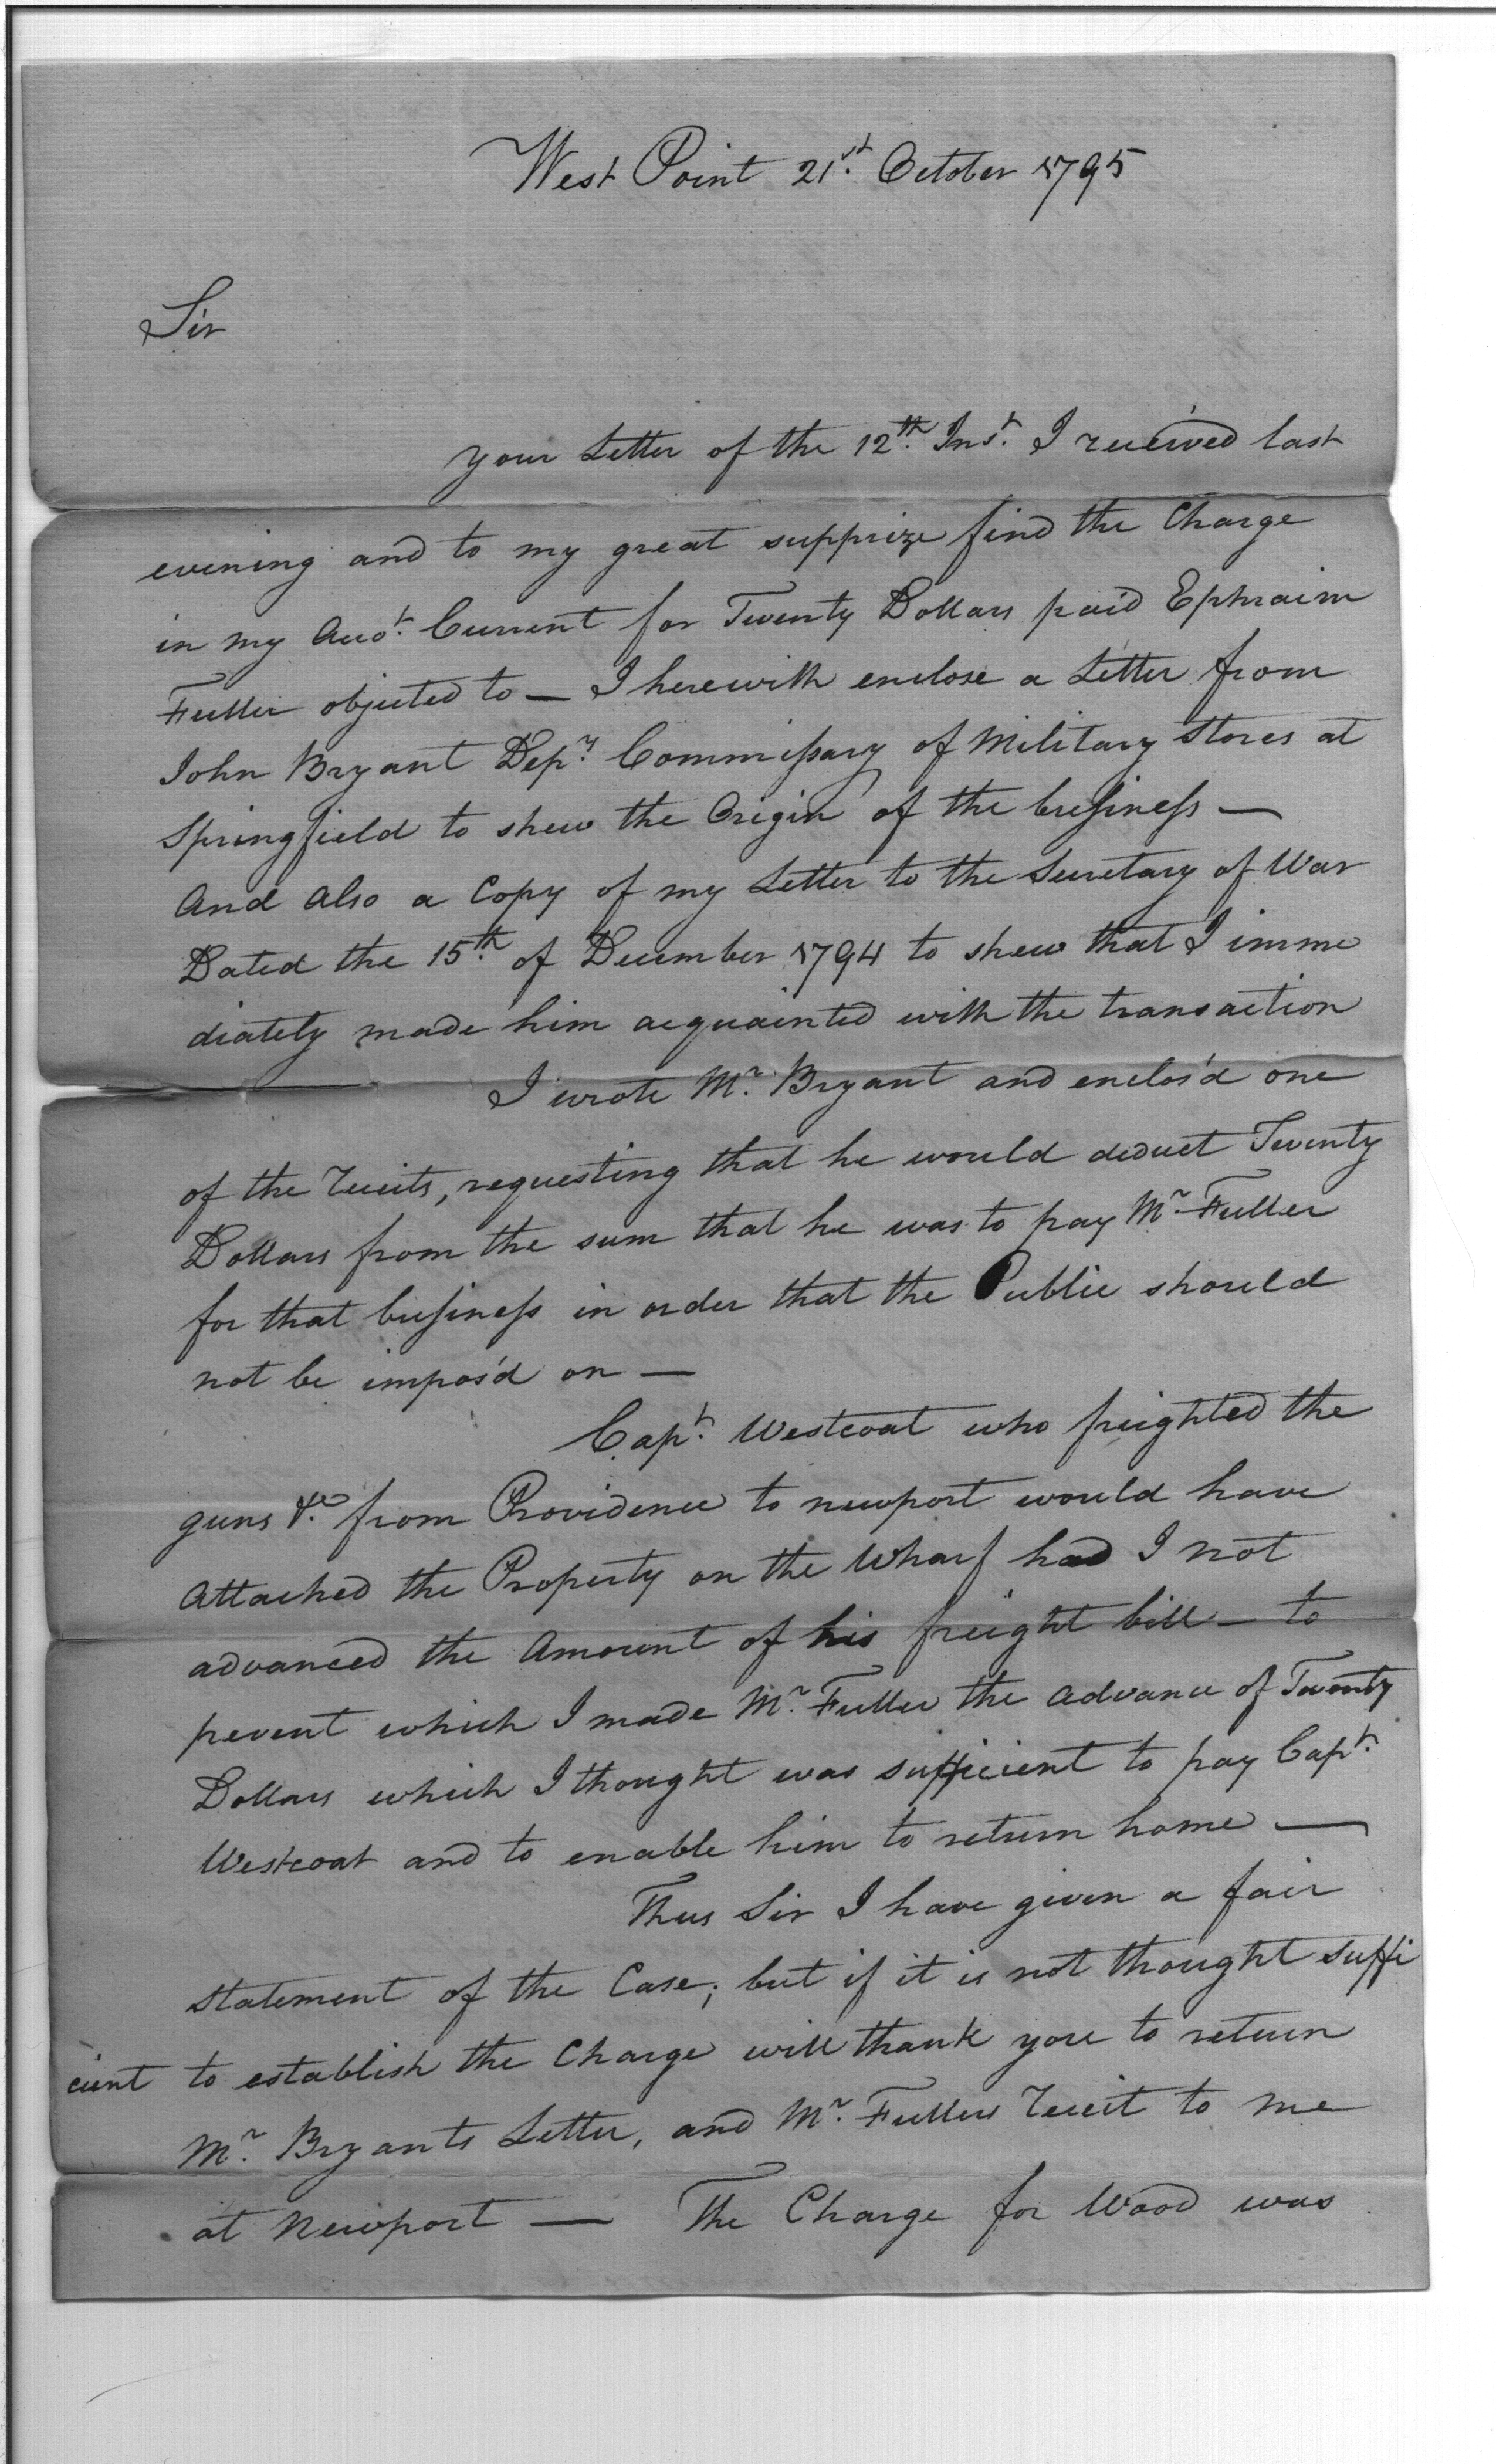 West Point 21st. October 1795
Sir
your Letter of the 12th. Inst. I received last
evening and to my great supprize find the Charge
in my Acot. Current for Twenty Dollars paid Ephraim
Fuller objected to — I herewith enclose a Letter from
John Bryant Depy. Commissary of Military Stores at
Springfield to shew the Origin of the business —
And also a Copy of my Letter to the Secretary of War
Dated the 15th. of December 1794 to shew that I imme
diately made him acquainted with the transaction
I wrote Mr. Bryant and enclos'd one
of the receits, requesting that he would deduct Twenty
Dollars from the sum that he was to pay Mr. Fuller
for that business in order that the Public should
not be impos'd on —
Capt. Westcoat who freighted the
guns &c. from Providence to newport would have
Attached the Property on the Wharf had I not
advanced the Amount of his freight bill — to
pevent which I made Mr. Fuller the advance of Twenty
Dollars which I thought was sufficient to pay Capt.
Westcoat and to enable him to return home —
Thus Sir I have given a fair
statement of the Case; but if it is not thought suffi
cient to establish the Charge will thank you to return
Mr. Bryants Letter, and Mr. Fullers receit to me
at Newport — The Charge for Wood was